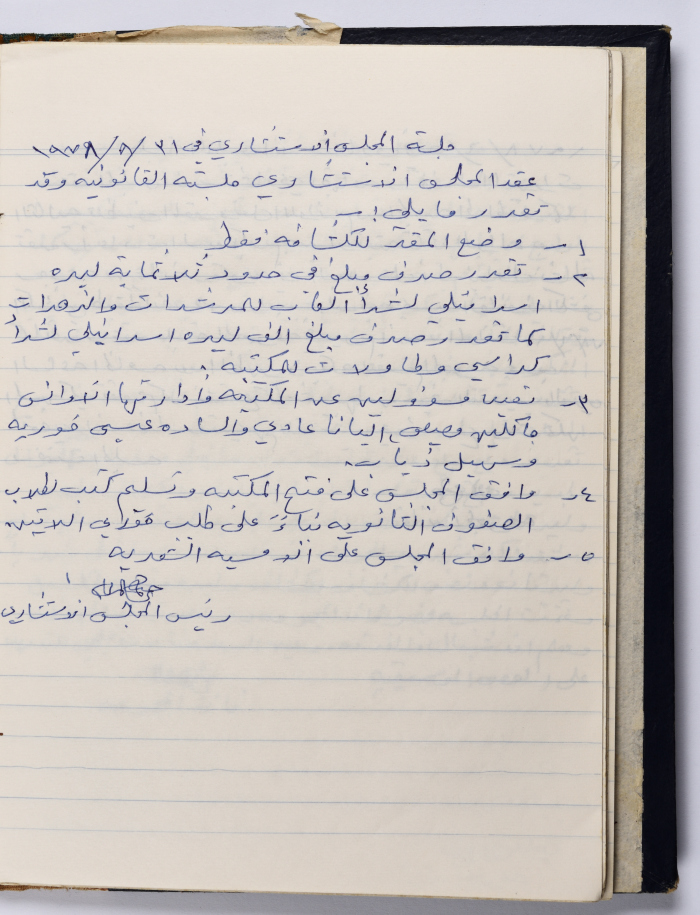 جلسة المجلس الاستشاري في ٣١/٨/١٩٧٨
عقد المجلس الاستشاري جلسته القانونيه وقد
تقرر ما يلي :-
١- وضع المقر للكشافه فقط
٢- تقرر صرف مبلغ في حدود ثلاثماية ليره
اسرائيلي لشرأ العاب للمرشدات والزهرات
كما تقرر صرف مبلغ الف ليره اسرائيلي لشرأ
كراسي وطاولات للمكتبه .
٣- تعين مسؤولين عن المكتبه وأدارتها الاوانس
جاكلين والساده عيسى خوريه
وسهيل ذياب .
٤- وافق المجلس على فتح المكتبه وتسليم كتب لطلاب
الصفوف الثانويه بناءً على طلب خوري اللاتين
٥- وافق المجلس على الامسيه الشعريه
رئيس المجلس الاستشاري